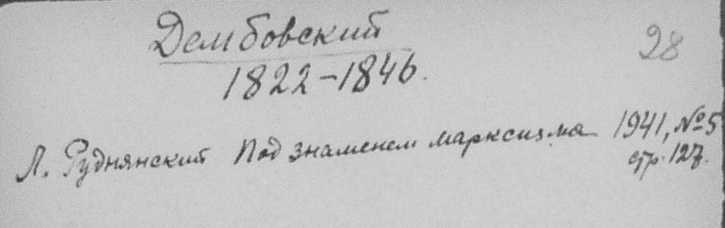 Дембовский
28
1822-1846.
Л. Руднянский Под знаменем марксизма 1941, № 5
стр. 127.